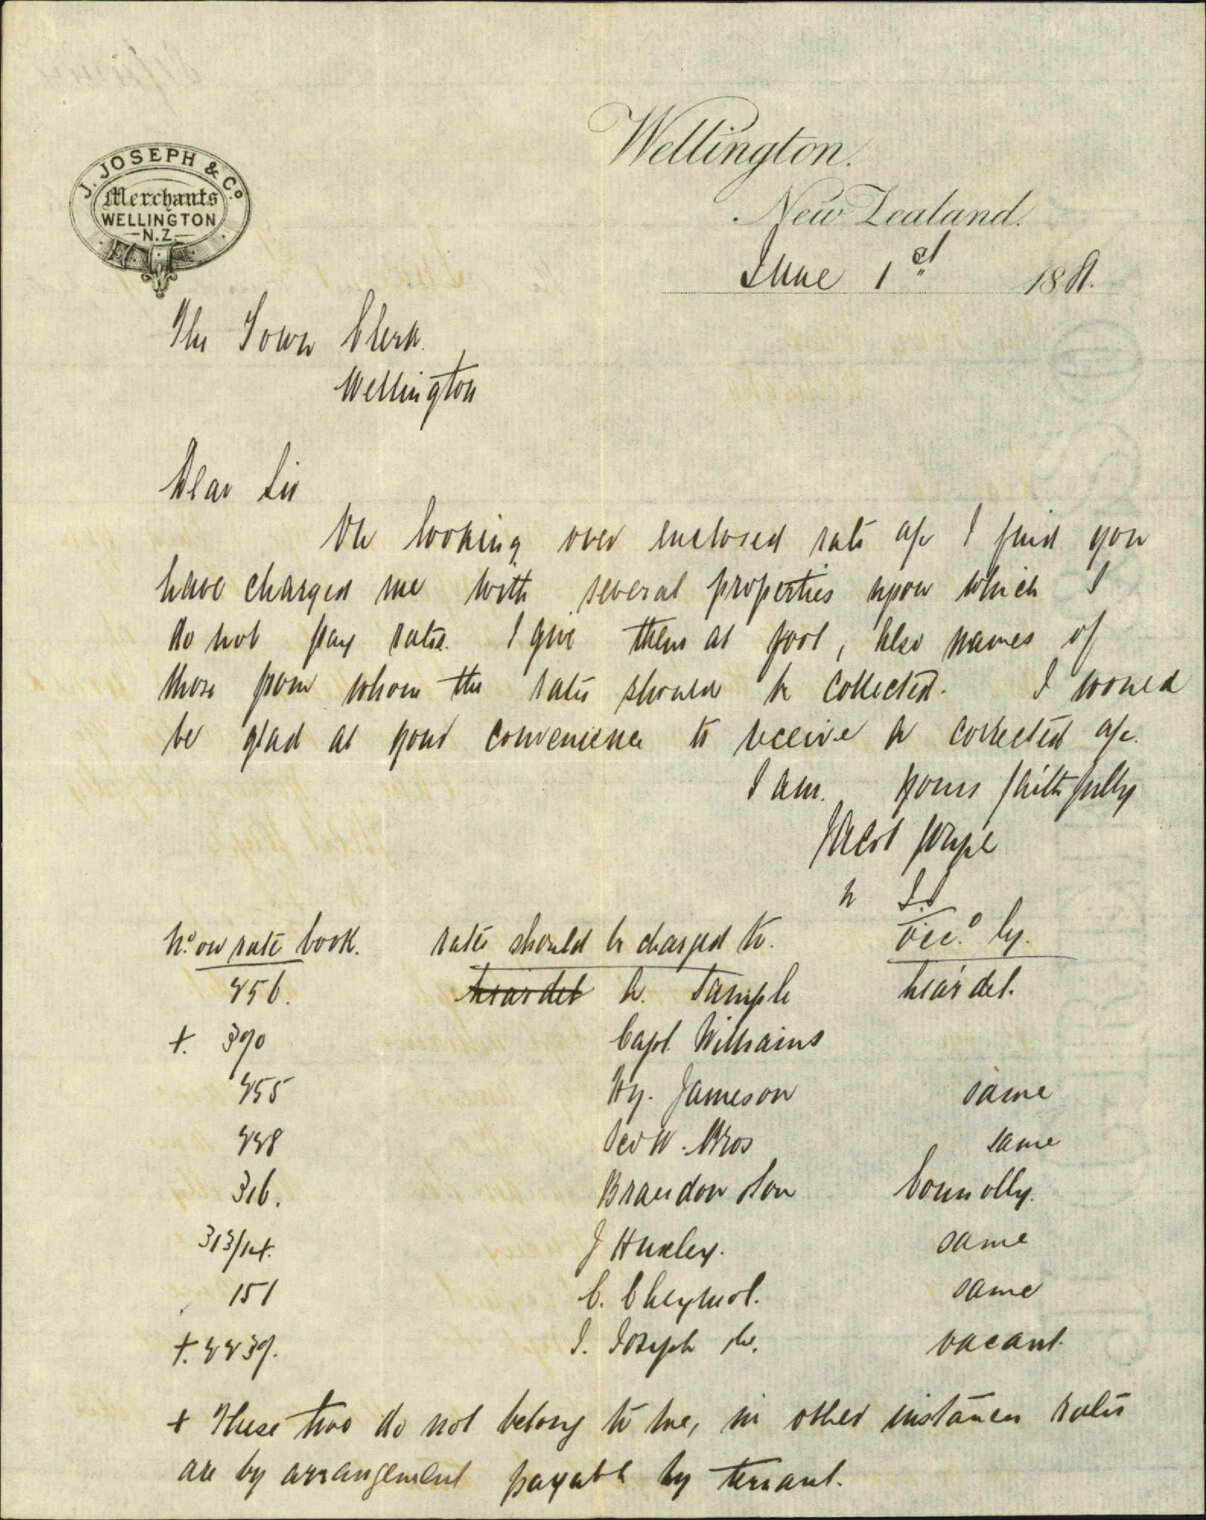 J. JOSEPH & Co.
Merchants
WELLINGTON
N.Z.
Wellington.
New Zealand.
June 1st 1881.
The Town Clerk.
Wellington
Dear Sir
On looking over enclosed rate a/c I find you
have charged me with several properties upon which I
do not pay rates. I give them at foot, also names of
those from whom the rates should be collected. I would
be glad at your convenience to receive a corrected a/c.
I am. yours faithfully
Jacob Joseph
No on rate book. rates should be charged to. occ.d by.
456. A. Temple
+. 390 Capt. Williams
455 Hy. Jameson same
448 Bros same
316. Brandon & Son Connolly.
313/14. J Huxley. same
151 C. Cheymol. same
+. 4439. J. Joseph Co. vacant.
+ These two do not belong to me, in other instances rates
are by arrangement payable by tenant.